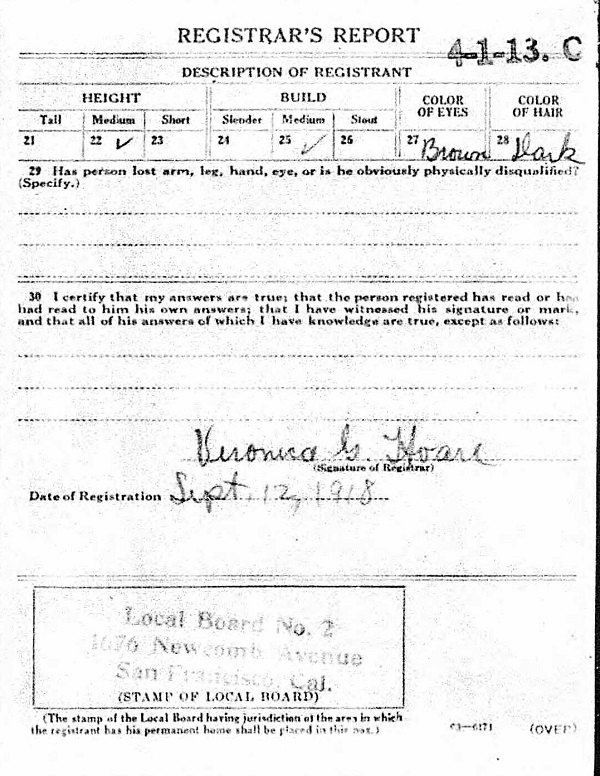 REGISTRAR'S REPORT
4-1-13. C
DESCRIPTION OF REGISTRANT
HEIGHT BUILD COLOR OF EYES COLOR OF HAIR
Tall Medium Short Slender Medium Stout
21 22 ✓ 23 24 25 ✓ 26 27 Brown 28 Dark
29 Has person lost arm, leg, hand, eye, or is he obviously physically disqualified?
(Specify.)
30 I certify that my answers are true; that the person registered has read or has
had read to him his own answers; that I have witnessed his signature or mark,
and that all of his answers of which I have knowledge are true, except as follows:
Veronica G. Hoare
(Signature of Registrar)
Date of Registration Sept. 12, 1918
Local Board No. 2
1676 Newcomb Avenue
San Francisco, Cal.
(STAMP OF LOCAL BOARD)
(The stamp of the Local Board having jurisdiction of the area in which
the registrant has his permanent home shall be placed in this box.)
03—6171 (OVER)